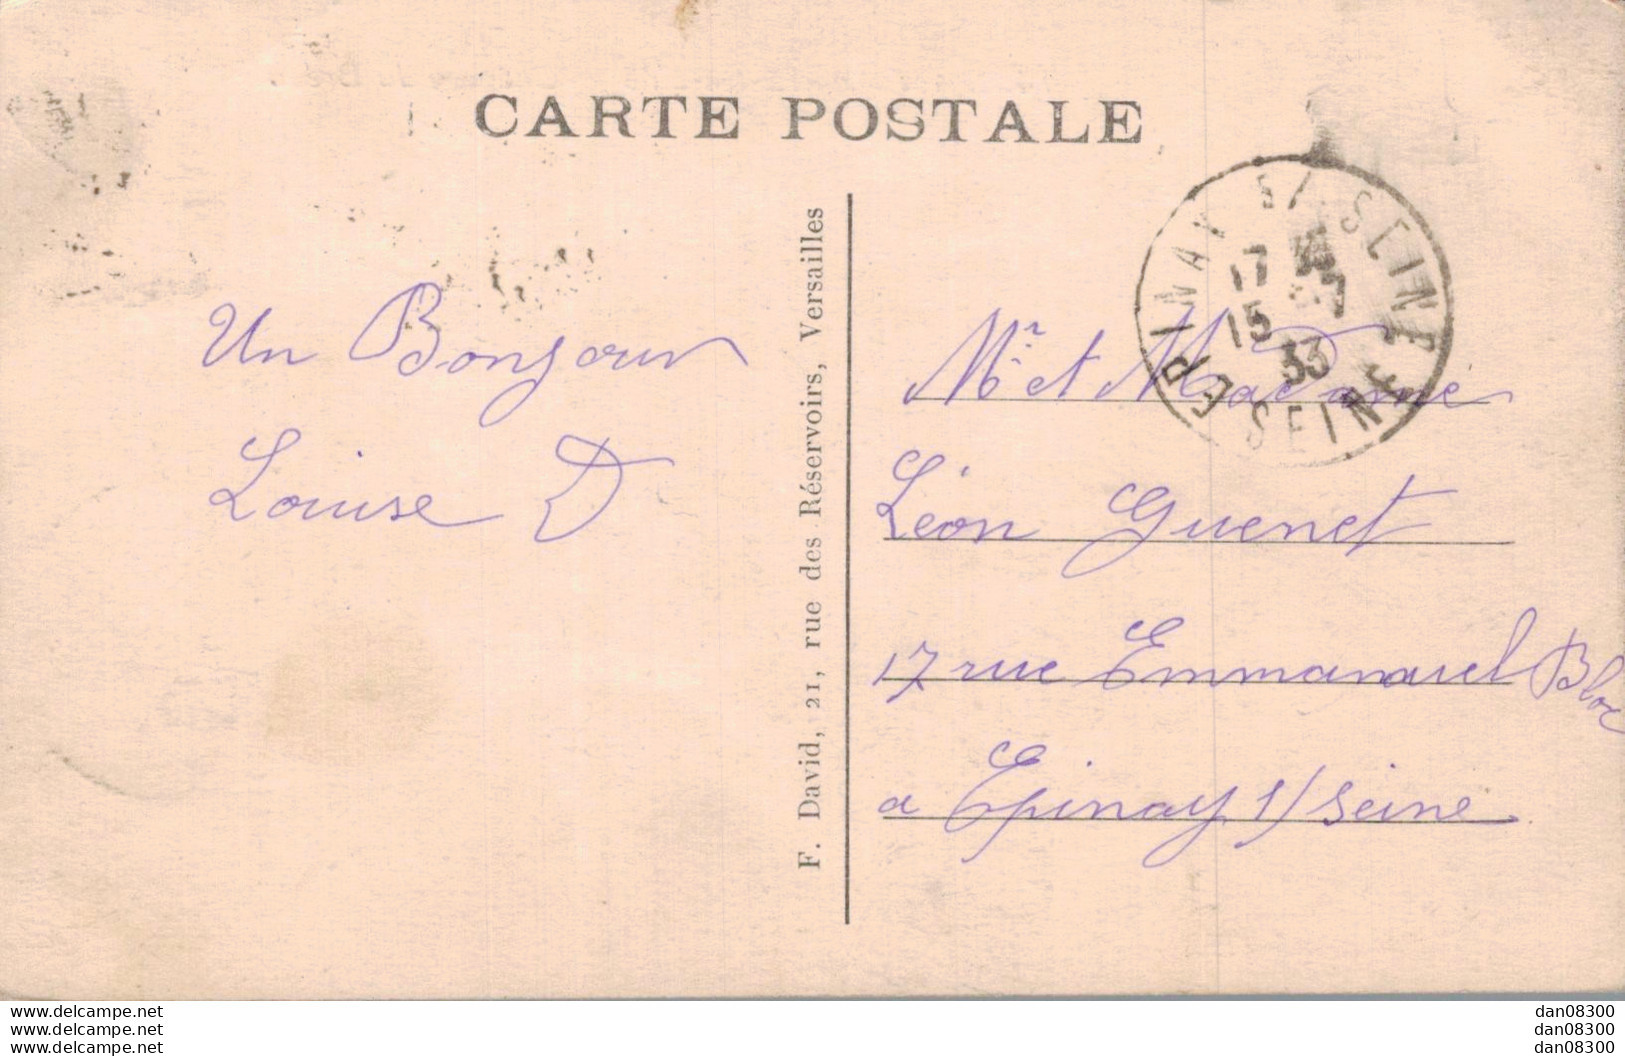 CARTE POSTALE
Un Bonjour
Louise D
F. David, 21, rue des Réservoirs, Versailles
EPINAY S/ SEINE
17
15 -7
33
SEINE
Mr et Madame
Léon Guenet
17 rue Emmanuel Bloc
a Epinay s/ seine
www.delcampe.net
www.delcampe.net
www.delcampe.net
dan08300
dan08300
dan08300